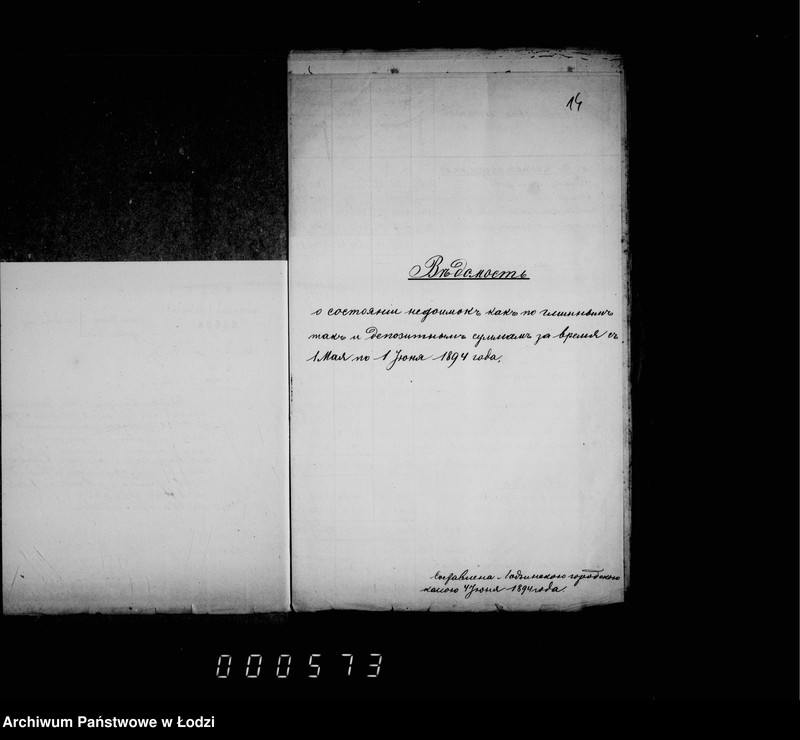 14
Вѣдомость
о состоянiи недоимокъ какъ по главнымъ
такъ и депозитнымъ суммамъ за время съ
1 Мая по 1 Iюня 1894 года.
Составлена Лодзинскою городскою
кассою 4 Iюня 1894 года.
000573
Archiwum Państwowe w Łodzi